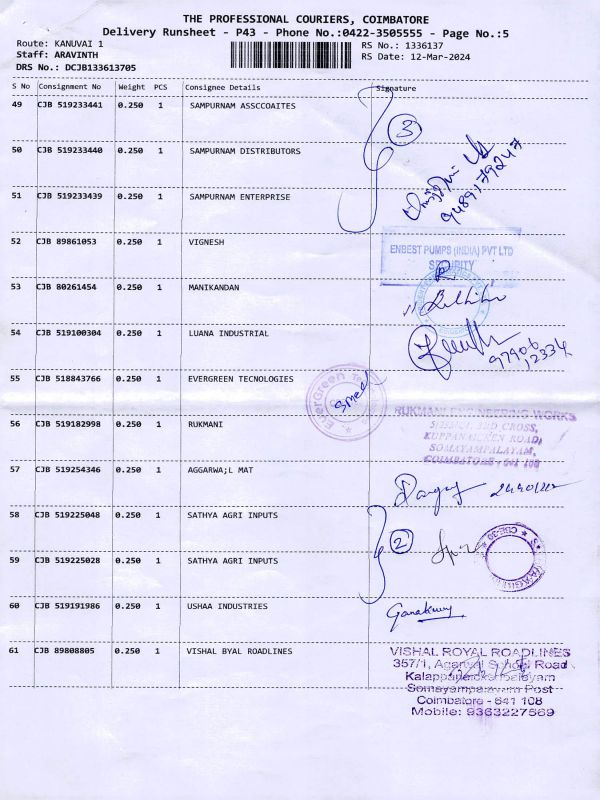 THE PROFESSIONAL COURIERS, COIMBATORE
Delivery Runsheet - P43 - Phone No.:0422-3505555 - Page No.:5
Route: KANUVAI 1
RS No.: 1336137
Staff: ARAVINTH
RS Date: 12-Mar-2024
DRS No.: DCJB133613705
S No Consignment No Weight PCS Consignee Details Signature
49 CJB 519233441 0.250 1 SAMPURNAM ASSCCOAITES
3
50 CJB 519233440 0.250 1 SAMPURNAM DISTRIBUTORS
9489179247
51 CJB 519233439 0.250 1 SAMPURNAM ENTERPRISE
52 CJB 89861053 0.250 1 VIGNESH
ENBEST PUMPS (INDIA) PVT LTD
SECURITY
53 CJB 80261454 0.250 1 MANIKANDAN
54 CJB 519100304 0.250 1 LUANA INDUSTRIAL
97906
12334
55 CJB 518843766 0.250 1 EVERGREEN TECNOLOGIES
EverGreen
56 CJB 519182998 0.250 1 RUKMANI
RUKMANI ENGINEERING WORKS
3RD CROSS,
KUPPANAICKEN ROAD,
SOMAYAMPALAYAM,
COIMBATORE - 641 108
57 CJB 519254346 0.250 1 AGGARWA;L MAT
58 CJB 519225048 0.250 1 SATHYA AGRI INPUTS
2
CBE-30
59 CJB 519225028 0.250 1 SATHYA AGRI INPUTS
60 CJB 519191986 0.250 1 USHAA INDUSTRIES
61 CJB 89808805 0.250 1 VISHAL BYAL ROADLINES
VISHAL ROYAL ROADLINES
357/1, Agarwal School Road
Somayampalayam Post
Coimbatore - 641 108
Mobile: 9363227569